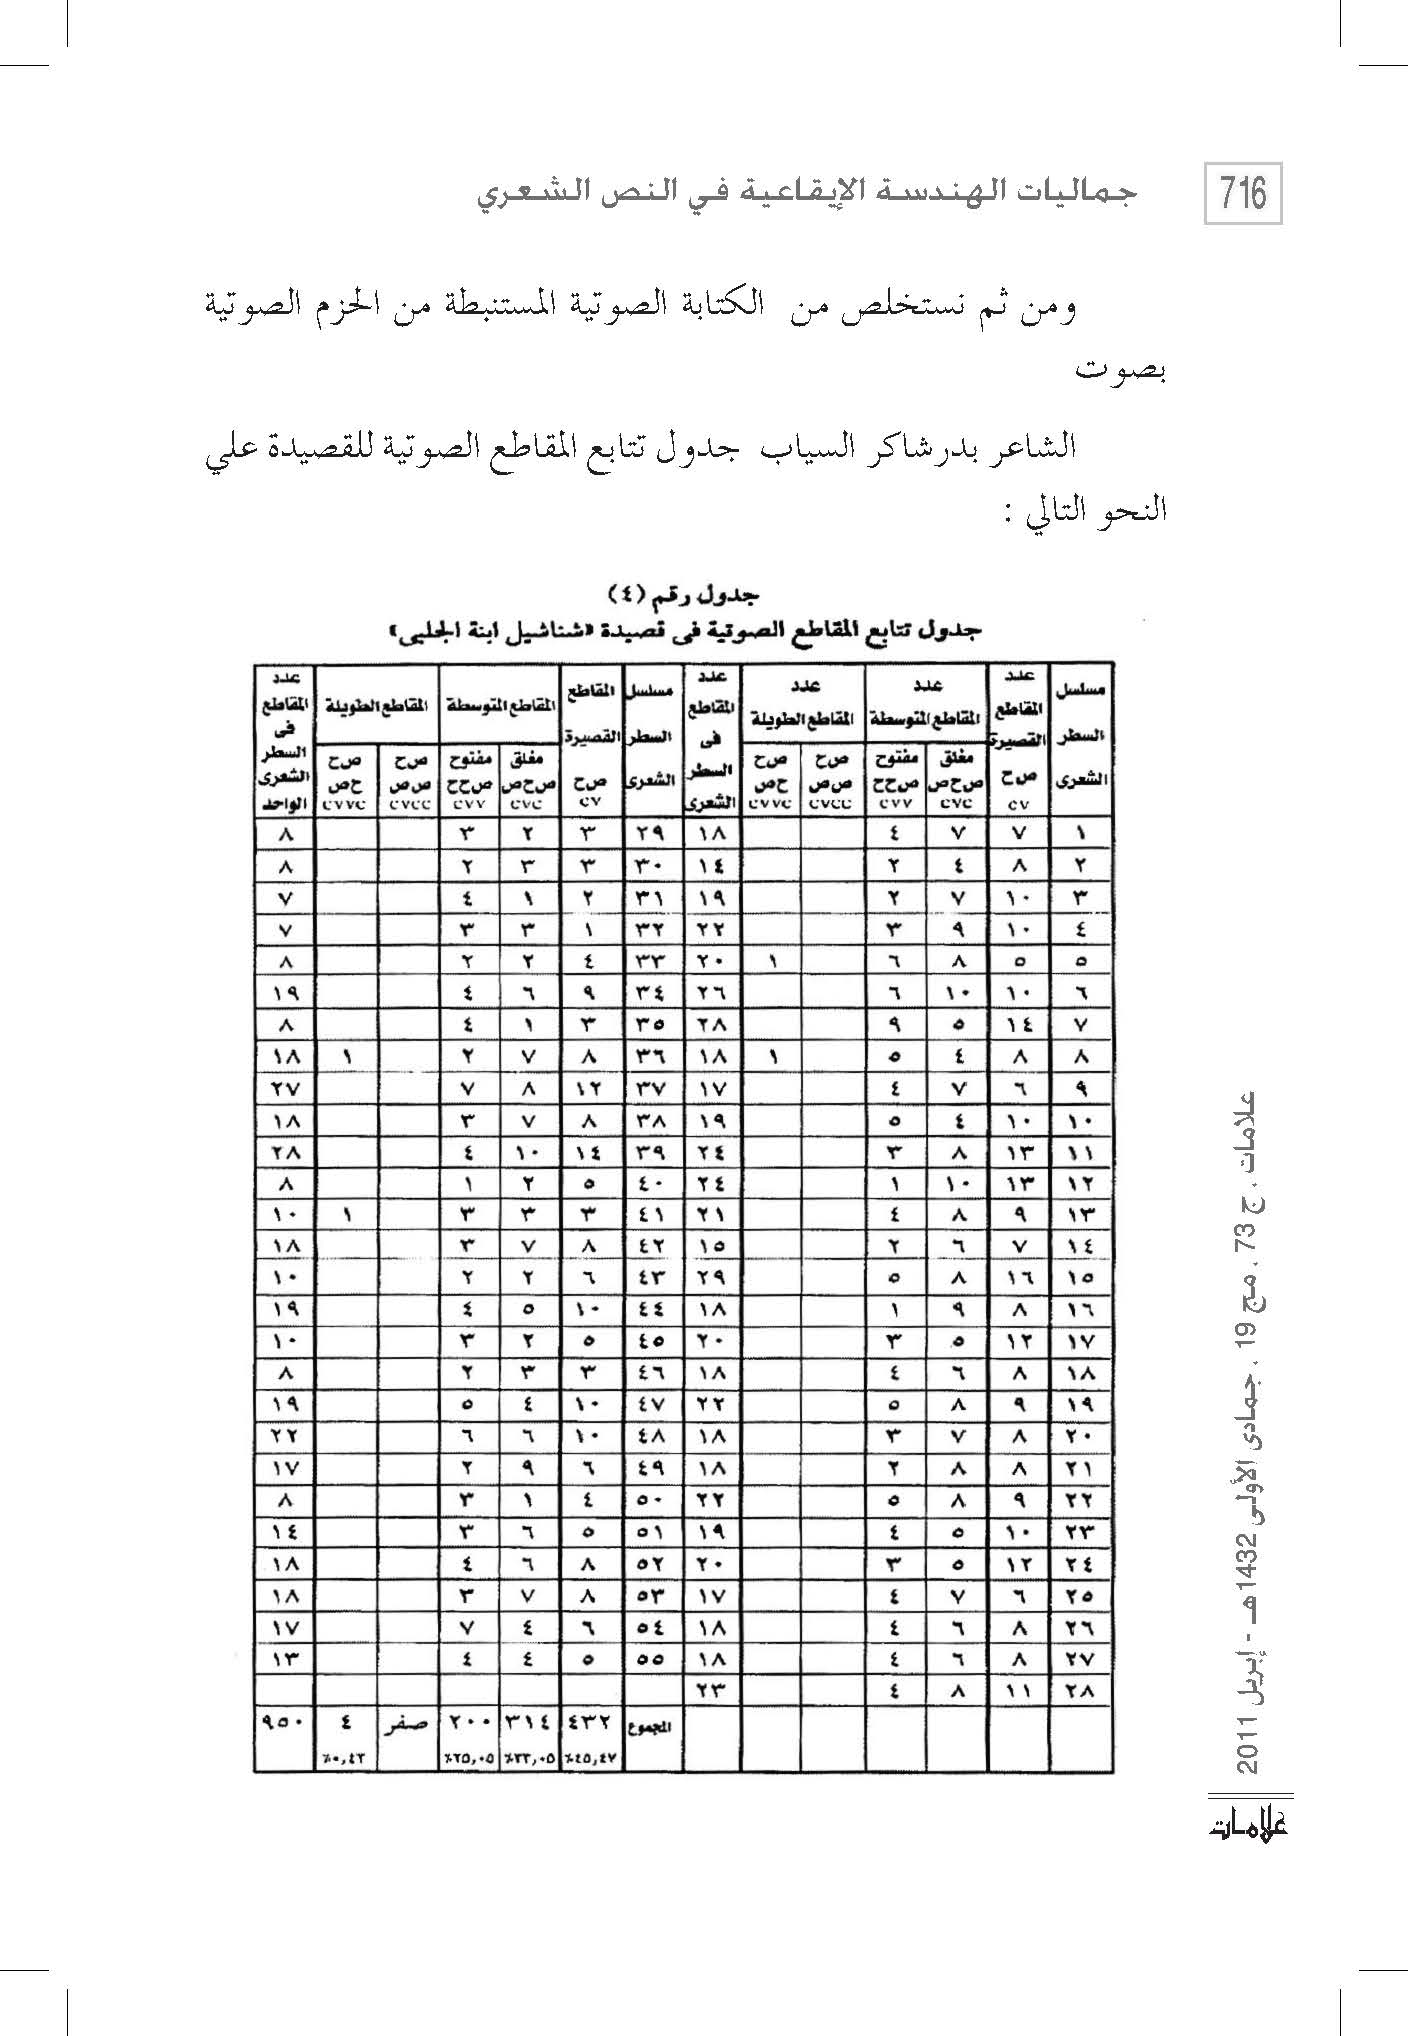 716
جماليات الهندسة الإيقاعية في النص الشعري
ومن ثم نستخلص من الكتابة الصوتية المستنبطة من الحزم الصوتية
بصوت
الشاعر بدرشاكر السياب جدول تتابع المقاطع الصوتية للقصيدة علي
النحو التالي :
جدول رقم (٤)
جدول تتابع المقاطع الصوتية فى قصيدة «شناشيل ابنة الجلبى»
مسلسل السطر الشعرى | عدد المقاطع القصيرة ص ح cv | عدد المقاطع المتوسطة | عدد المقاطع الطويلة | عدد المقاطع فى السطر الشعرى | مسلسل السطر الشعرى | المقاطع القصيرة ص ح cv | المقاطع المتوسطة | المقاطع الطويلة | عدد المقاطع فى السطر الشعرى الواحد
مغلق ص ح ص cvc | مفتوح ص ح ح cvv | ص ح ص ص cvcc | ص ح ح ص cvvc | مغلق ص ح ص cvc | مفتوح ص ح ح cvv | ص ح ص ص cvcc | ص ح ح ص cvvc
١ ٧ ٧ ٤ ١٨ ٢٩ ٣ ٢ ٣ ٨
٢ ٨ ٤ ٢ ١٤ ٣٠ ٣ ٣ ٢ ٨
٣ ١٠ ٧ ٢ ١٩ ٣١ ٢ ١ ٤ ٧
٤ ١٠ ٩ ٣ ٢٢ ٣٢ ١ ٣ ٣ ٧
٥ ٥ ٨ ٦ ١ ٢٠ ٣٣ ٤ ٢ ٢ ٨
٦ ١٠ ١٠ ٦ ٢٦ ٣٤ ٩ ٦ ٤ ١٩
٧ ١٤ ٥ ٩ ٢٨ ٣٥ ٣ ١ ٤ ٨
٨ ٨ ٤ ٥ ١ ١٨ ٣٦ ٨ ٧ ٢ ١ ١٨
٩ ٦ ٧ ٤ ١٧ ٣٧ ١٢ ٨ ٧ ٢٧
١٠ ١٠ ٤ ٥ ١٩ ٣٨ ٨ ٧ ٣ ١٨
١١ ١٣ ٨ ٣ ٢٤ ٣٩ ١٤ ١٠ ٤ ٢٨
١٢ ١٣ ١٠ ١ ٢٤ ٤٠ ٥ ٢ ١ ٨
١٣ ٩ ٨ ٤ ٢١ ٤١ ٣ ٣ ٣ ١ ١٠
١٤ ٧ ٦ ٢ ١٥ ٤٢ ٨ ٧ ٣ ١٨
١٥ ١٦ ٨ ٥ ٢٩ ٤٣ ٦ ٢ ٢ ١٠
١٦ ٨ ٩ ١ ١٨ ٤٤ ١٠ ٥ ٤ ١٩
١٧ ١٢ ٥ ٣ ٢٠ ٤٥ ٥ ٢ ٣ ١٠
١٨ ٨ ٦ ٤ ١٨ ٤٦ ٣ ٣ ٢ ٨
١٩ ٩ ٨ ٥ ٢٢ ٤٧ ١٠ ٤ ٥ ١٩
٢٠ ٨ ٧ ٣ ١٨ ٤٨ ١٠ ٦ ٦ ٢٢
٢١ ٨ ٨ ٢ ١٨ ٤٩ ٦ ٩ ٢ ١٧
٢٢ ٩ ٨ ٥ ٢٢ ٥٠ ٤ ١ ٣ ٨
٢٣ ١٠ ٥ ٤ ١٩ ٥١ ٥ ٦ ٣ ١٤
٢٤ ١٢ ٥ ٣ ٢٠ ٥٢ ٨ ٦ ٤ ١٨
٢٥ ٦ ٧ ٤ ١٧ ٥٣ ٨ ٧ ٣ ١٨
٢٦ ٨ ٦ ٤ ١٨ ٥٤ ٦ ٤ ٧ ١٧
٢٧ ٨ ٦ ٤ ١٨ ٥٥ ٥ ٤ ٤ ١٣
٢٨ ١١ ٨ ٤ ٢٣
المجموع ٤٣٢ ٣١٤ ٢٠٠ صفر ٤ ٩٥٠
٪٤٥,٤٧ ٪٣٣,٠٥ ٪٢٥,٠٥ ٪٠,٤٢
علامات . ج 73 . مج 19 . جمادى الأولى 1432هـ - إبريل 2011
علامات